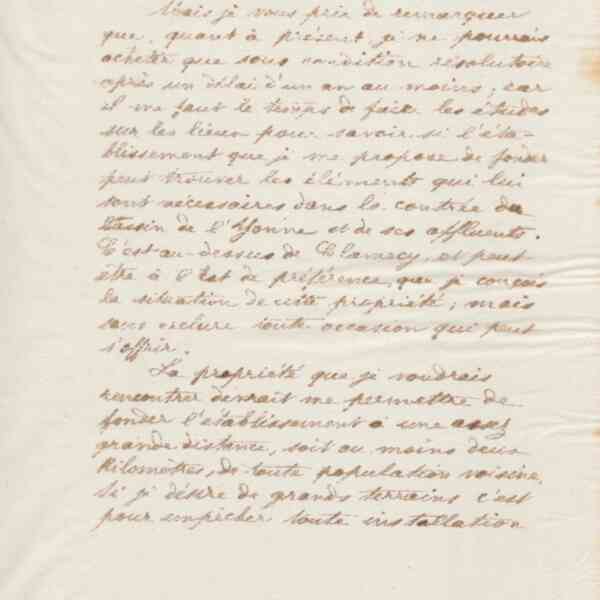 Mais je vous prie de remarquer
que, quant à présent, je ne pourrais
acheter que sous condition résolutoire
après un délai d'un an au moins ; car
il me faut le temps de faire les études
sur les lieux pour savoir si l'éta-
blissement que je me propose de fonder
peut trouver les éléments qui lui
sont nécessaires dans la contrée du
bassin de l'Yonne et de ses affluents.
C'est au-dessus de Clamecy, et peut
être à l'Est de préférence, que je conçois
la situation de cette propriété ; mais
sans exclure toute occasion qui peut
s'offrir.
La propriété que je voudrais
rencontrer devrait me permettre de
fonder l'établissement à une assez
grande distance, soit au moins deux
Kilomètres, de toute population voisine.
Si je désire de grands terrains c'est
pour empêcher toute installation